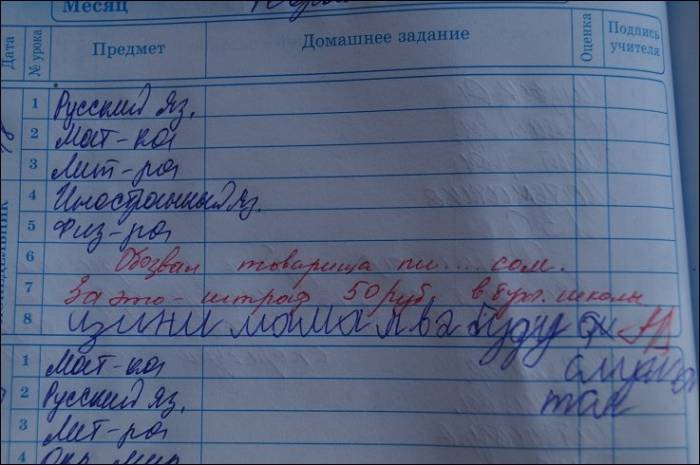 Месяц
Дата № урока Предмет Домашнее задание Оценка Подпись учителя
1 Русский яз.
2 Мат-ка
3 Лит-ра
4 Иностранный яз.
5 Физ-ра
6 Обозвал товарища пи....сом.
7 За это - штраф 50 руб в бух. школы
8 изини мама я ва буду
1 Мат-ка
2 Русский яз.
3 Лит-ра
4 Окр. мир